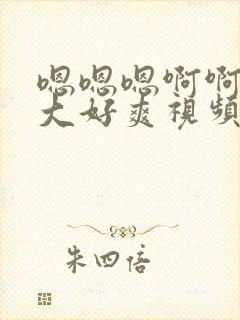 嗯嗯嗯啊啊
大好爽視頻
朱四倍